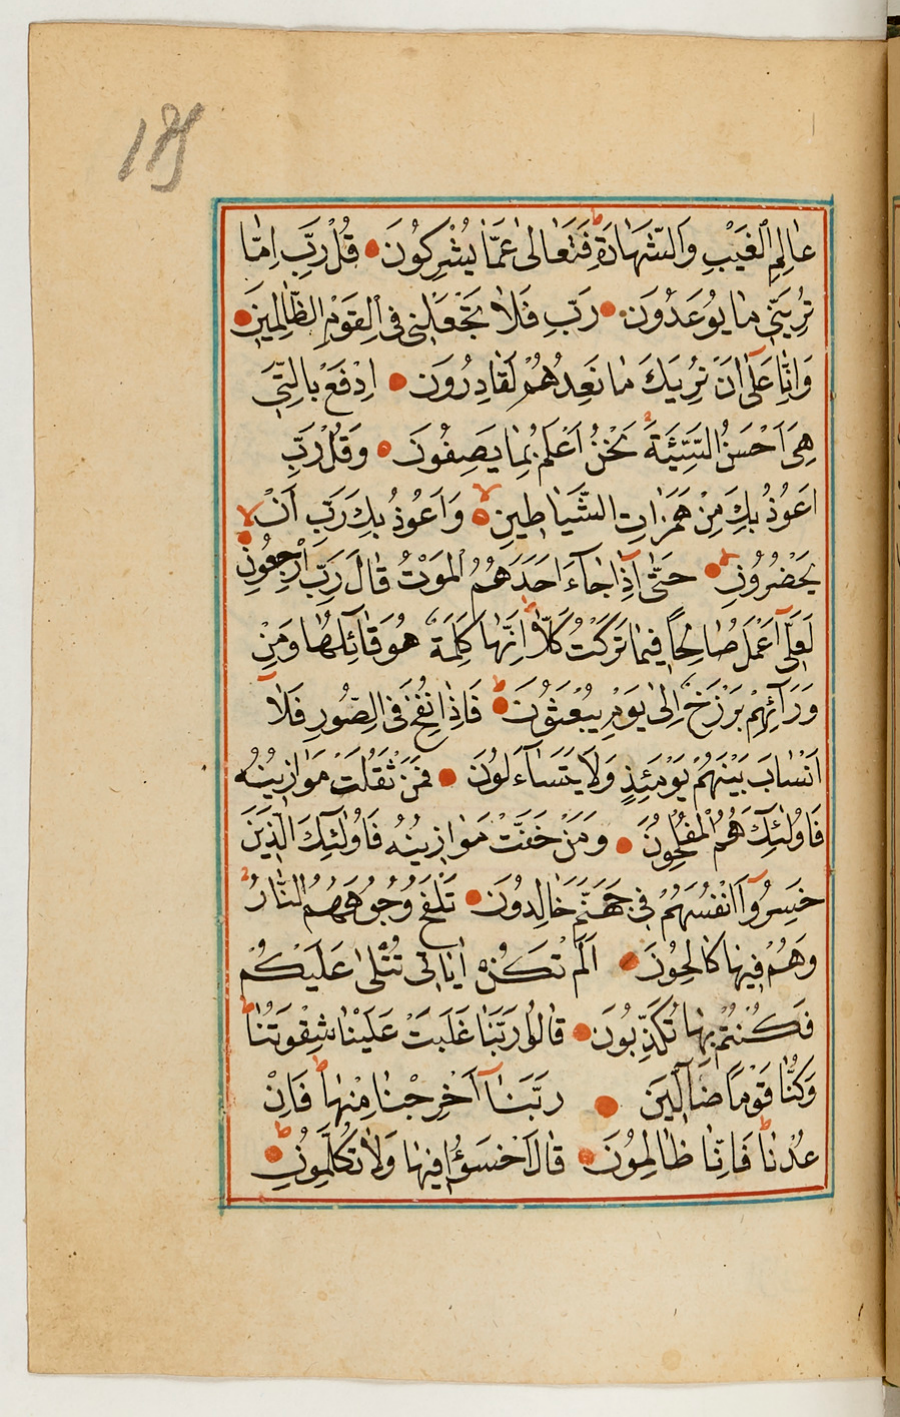 عَالِمِ الْغَيْبِ وَالشَّهَادَةِ فَتَعَالىٰ عَمَّا يُشْرِكُونَ قُلْ رَبِّ اِمَّا
تُرِيَنّى مَا يوُعَدُونَ رَبِّ فَلَا تَجْعَلْنِى فِى الْقَوْمِ الظَّالِمِينَ
وَاِنَّا عَلٰٓى اَنْ نُرِيَكَ مَا نَعِدُهُمْ لَقَادِرُونَ اِدْفَعْ بِالَّتِى
هِىَ اَحْسَنُ السَّيِّئَةَ نَحْنُ اَعْلَمُ بِمَا يَصِفُونَ وَقُلْ رَبِّ
اَعوُذُ بِكَ مِنْ هَمَزَاتِ الشَّيَاطِينِ وَاَعوُذُ بِكَ رَبِّ اَنْ
يَحْضُروُنِ حَتّٰٓى اِذَا جَاءَ اَحَدَهُمُ الْمَوْتُ قَالَ رَبِّ ارْجِعُونِ
لَعَلّٓى اَعْمَلُ صَالِحاً فِيمَا تَرَكْتُ كَلَّا اِنَّهَا كَلِمَةٌ هُوَ قَآئِلُهَا وَمِنْ
وَرَآئِهِمْ بَرْزَخٌ اِلىٰ يَوْمِ يُبْعَثوُنَ فَاِذَا نُفِخَ فِى الصُّورِ فَلَا
اَنْسَابَ بَيْنَهُمْ يَوْمَئِذٍ وَلَا يَتَسَآءَلوُنَ فَمَنْ ثَقُلَتْ مَوَازِينُهُ
فَاُولٰٓئِكَ هُمُ الْمُفْلِحُونَ وَمَنْ خَفَّتْ مَوَازِينُهُ فَاُولٰٓئِكَ الَّذِينَ
خَسِرُوٓا اَنْفُسَهُمْ فِى جَهَنَّمَ خَالِدوُنَ تَلْفَحُ وُجُوهَهُمُ النَّارُ
وَهُمْ فِيهَا كَالِحُونَ اَلَمْ تَكُنْ اٰيَاتِى تُتْلىٰ عَلَيْكُمْ
فَكُنْتُمْ بِهَا تُكَذِّبُونَ قَالُوا رَبَّنَا غَلَبَتْ عَلَيْنَا شِقْوَتُنَا
وَكُنَّا قَوْماً ضَآلِّينَ رَبَّنَآ اَخْرِجْنَا مِنْهَا فَاِنْ
عُدْنَا فَاِنَّا ظَالِمُونَ قَالَ اخْسَؤُا فِيهَا وَلَا تُكَلِّمُونِ